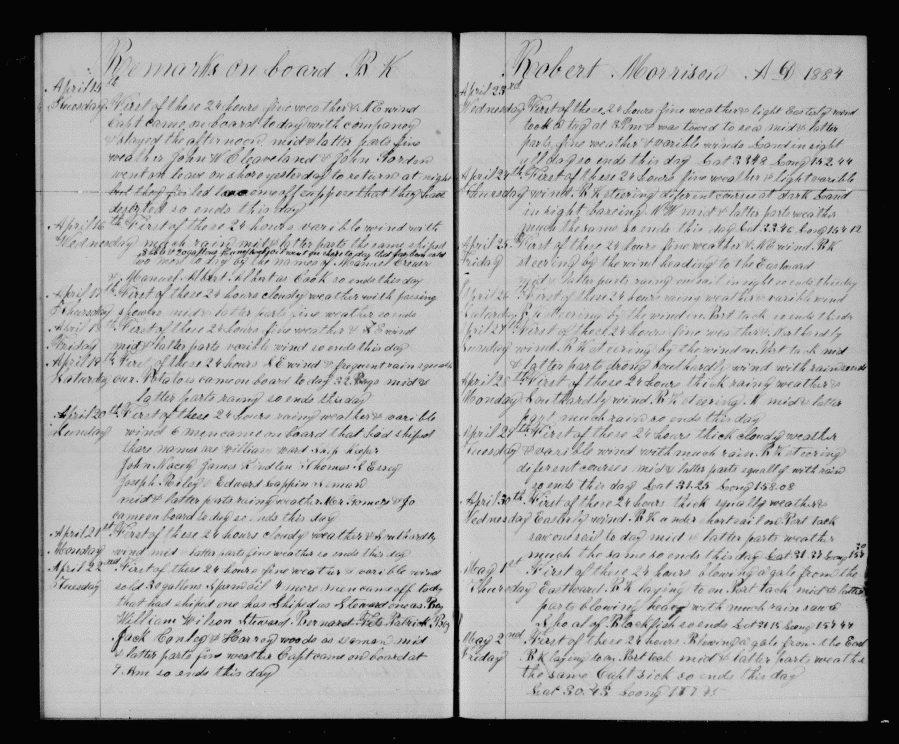 Remarks on board B K
April 15th First of these 24 hours fine weather & N E wind
Tuesday Capt came on board to day with companey
& stayed the afternoon mid & latter parts fine
weather John W Cleaveland & John Jordan
went on leave on shore yesterday to return at night
but they failed to come off suppose that they have
deserted so ends this day
April 16th First of these 24 hours varible wind with
Wednesday much rain mid & latter parts the same shiped
two more to day by the names of Manuel
& Manuel Albert Albert as Cook so ends this day
April 17th First of these 24 hours cloudy weather with passing
Thursday showers mid & latter parts fine weather so ends
April 18th First of these 24 hours fine weather & S E wind
Friday mid & latter parts varible wind so ends this day
April 19th First of these 24 hours S E wind & frequent rain squalls
Saturday our Potatoes came on board to day 32 Bags mid &
latter parts rainy so ends this day
April 20th First of these 24 hours rainy weather & varible
Sunday wind 6 men came on board that had shiped
there names are William ward Ship Keeper
John Macey James Kindlen Thomas S Essig
Joseph Reiley & Edward Tappin Seamen
mid & latter parts rainy weather
came on board to day so ends this day
April 21st First of these 24 hours cloudy weather & Southardly
Monday wind mid & latter parts fine weather so ends this day
April 22nd First of these 24 hours fine weather & varible wind
Tuesday sold 30 gallons Sperm oil 4 more men came off to day
that had shiped one has Shiped as Steward one as Boy
William Wilson Steward Bernard Fitz Patrick Boy
Jack Conley & Harrey woods as seaman mid
& latter parts fine weather Capt came on board at
7 Am so ends this day
Robert Morrison A D 1884
April 23rd First of these 24 hours fine weather & light Easterly wind
Wednesday took a tug at 3 Pm & was towed to sea mid & latter
parts fine weather & varible winds Land in sight
all day so ends this day Lat 33.48 Long 152.44
April 24th First of these 24 hours fine weather & light varible
Thursday wind B K steering diferent courses at dark Land
in sight bearing N W mid & latter parts weather
much the same so ends this day Lat 33.40 Long 154.12
April 25th First of these 24 hours fine weather & N E wind B K
Friday steering by the wind heading to the Eastward
mid & latter parts rainy one sail in sight so ends this day
April 26 First of these 24 hours rainy weather & varible wind
Saturday B K steering by the wind on Port tack so ends this day
April 27th First of these 24 hours fine weather & Northerdly
Sunday wind B K steering by the wind on Port tack mid
& latter parts strong Southardly wind with rain so ends
April 28th First of these 24 hours thick rainy weather &
Monday Southardly wind B K steering N mid & latter
part much rain so ends this day
April 29th First of these 24 hours thick cloudy weather
Tuesday & varible wind with much rain B K steering
diferent courses mid & latter parts squally with rain
so ends this day Lat 31.25 Long 158.08
April 30th First of these 24 hours thick squally weather &
Wednesday Easterly wind B K under short sail on Port tack
saw one sail to day mid & latter parts weather
much the same so ends this day Lat 31.37 Long
May 1st First of these 24 hours blowing a gale from the
Thursday Eastward B K laying to on Port tack mid & latter
parts blowing heavy with much rain saw a
Shoal of Blackfish so ends Lat 31.15 Long 157.44
May 2nd First of these 24 hours Blowing a gale from the East
Friday B K laying to on Port tack mid & latter parts weather
the same Capt sick so ends this day
Lat 30.43 Long